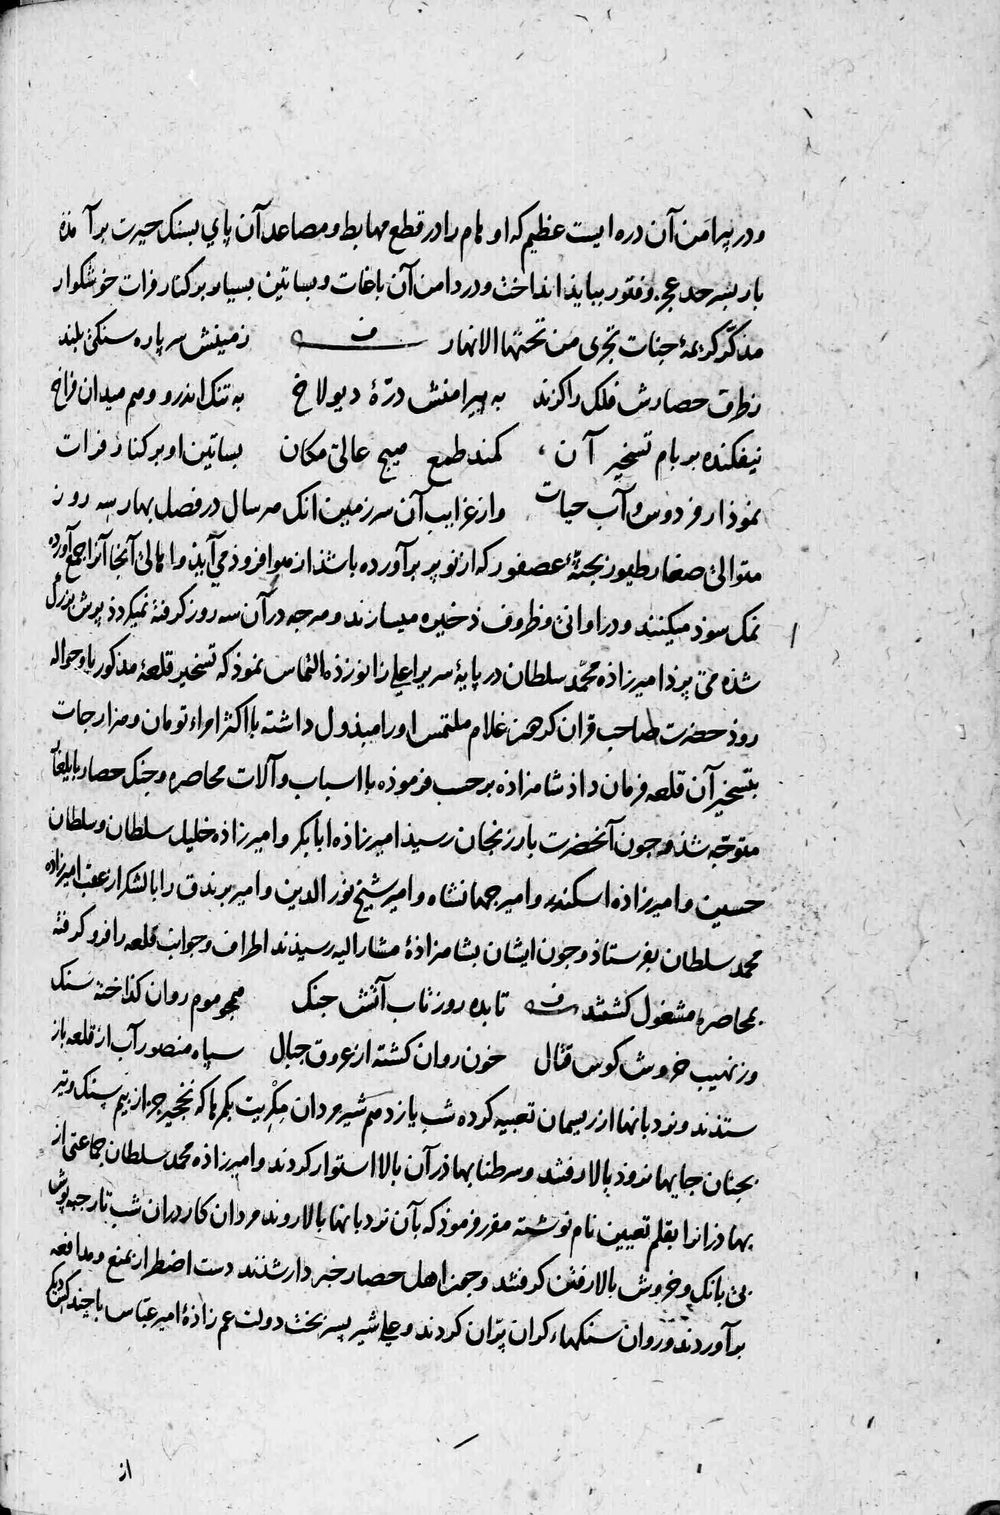 و در پیرامن آن دره ایست عظیم که اوهام را در قطع مهابط و مصاعد آن پای بسنک حیرت برآمده
بار بسرحد عجز و فتور بباید انداخت و در دامن آن باغات و بساتین بسیار بر کنار فرات خوشکوار
مذکر کریمهٔ جنات تجری من تحتها الانهار زمینش سر پاره سنکی بلند
حصارش فلک را کزند به پیرامنش درّهٔ دیولاخ به تنک اندرو وهم میدان فراخ
نیفکنده بر بام تسخیر آن کمند طمع هیچ عالی مکان بساتین او بر کنار فرات
نموذار فردوس و آب حیات و از غرایب آن سرزمین انک هر سال در فصل بهار سه روز
متوالی صغار طیور بجثهٔ عصفور که از نو پر برآورده باشند از هوا فرود می آیند و اهالی آنجا آنرا جمع آورده
نمک سود میکنند و در اوانی و ظروف ذخیره میسازند و هرچه در آن سه روز کرفته نمیکردد پرش بزرک
شده می پرد امیرزاده محمد سلطان در پایهٔ سریر اعلی زانو زده التماس نموذ که تسخیر قلعهٔ مذکور باو حواله
روذ حضرت صاحب قران ملتمس او را مبذول داشته با اکثر امراء تومان و هزارجات
بتسخیر آن قلعه فرمان داذ شاهزاده بر حسب فرموده با اسباب و آلات محاصره و جنک حصار بایلغار
متوجه شذ و چون آنحضرت بارزنجان رسید امیرزاده ابابکر و امیرزاده خلیل سلطان و سلطان
حسین و امیرزاده اسکندر و امیر جهانشاه و امیر شیخ نور الدین و امیر برندق را با لشکر از عقب امیرزاده
محمد سلطان بفرستاذ و چون ایشان بشاهزادهٔ مشار الیه رسیدند اطراف و جوانب قلعه را فرو کرفته
بمحاصره مشغول کشتند تا بده روز تاب آتش جنک همچو موم روان کذاخته سنک
وز نهیب خروش کوس قتال خون روان کشته از عروق جبال سپاه منصور آب از قلعه باز
ستدند و نردبانها از ریسمان تعبیه کرده شب یازدهم شیرمردان مکریت بکمرها که نخجیر جز از بیم سنک و تیر
بجنان جایها نرود بالا رفتند و سر طنابها در آن بالا استوار کردند و امیرزاده محمد سلطان جماعتی از
بهادرانرا بقلم تعیین نام نوشته مقرر فرموذ که بآن نردبانها بالا روند مردان کاردان شب تار جبه پوش
بی بانک و خروش بالا رفتن کرفتند و چون اهل حصار خبردار شدند دست اضطرار بمنع و مدافعه
برآوردند و روان سنکهاء کران پرّان کردند و علی شیر پسر بخت دولت عم زادهٔ امیر عباس با چند کس دیکر
از